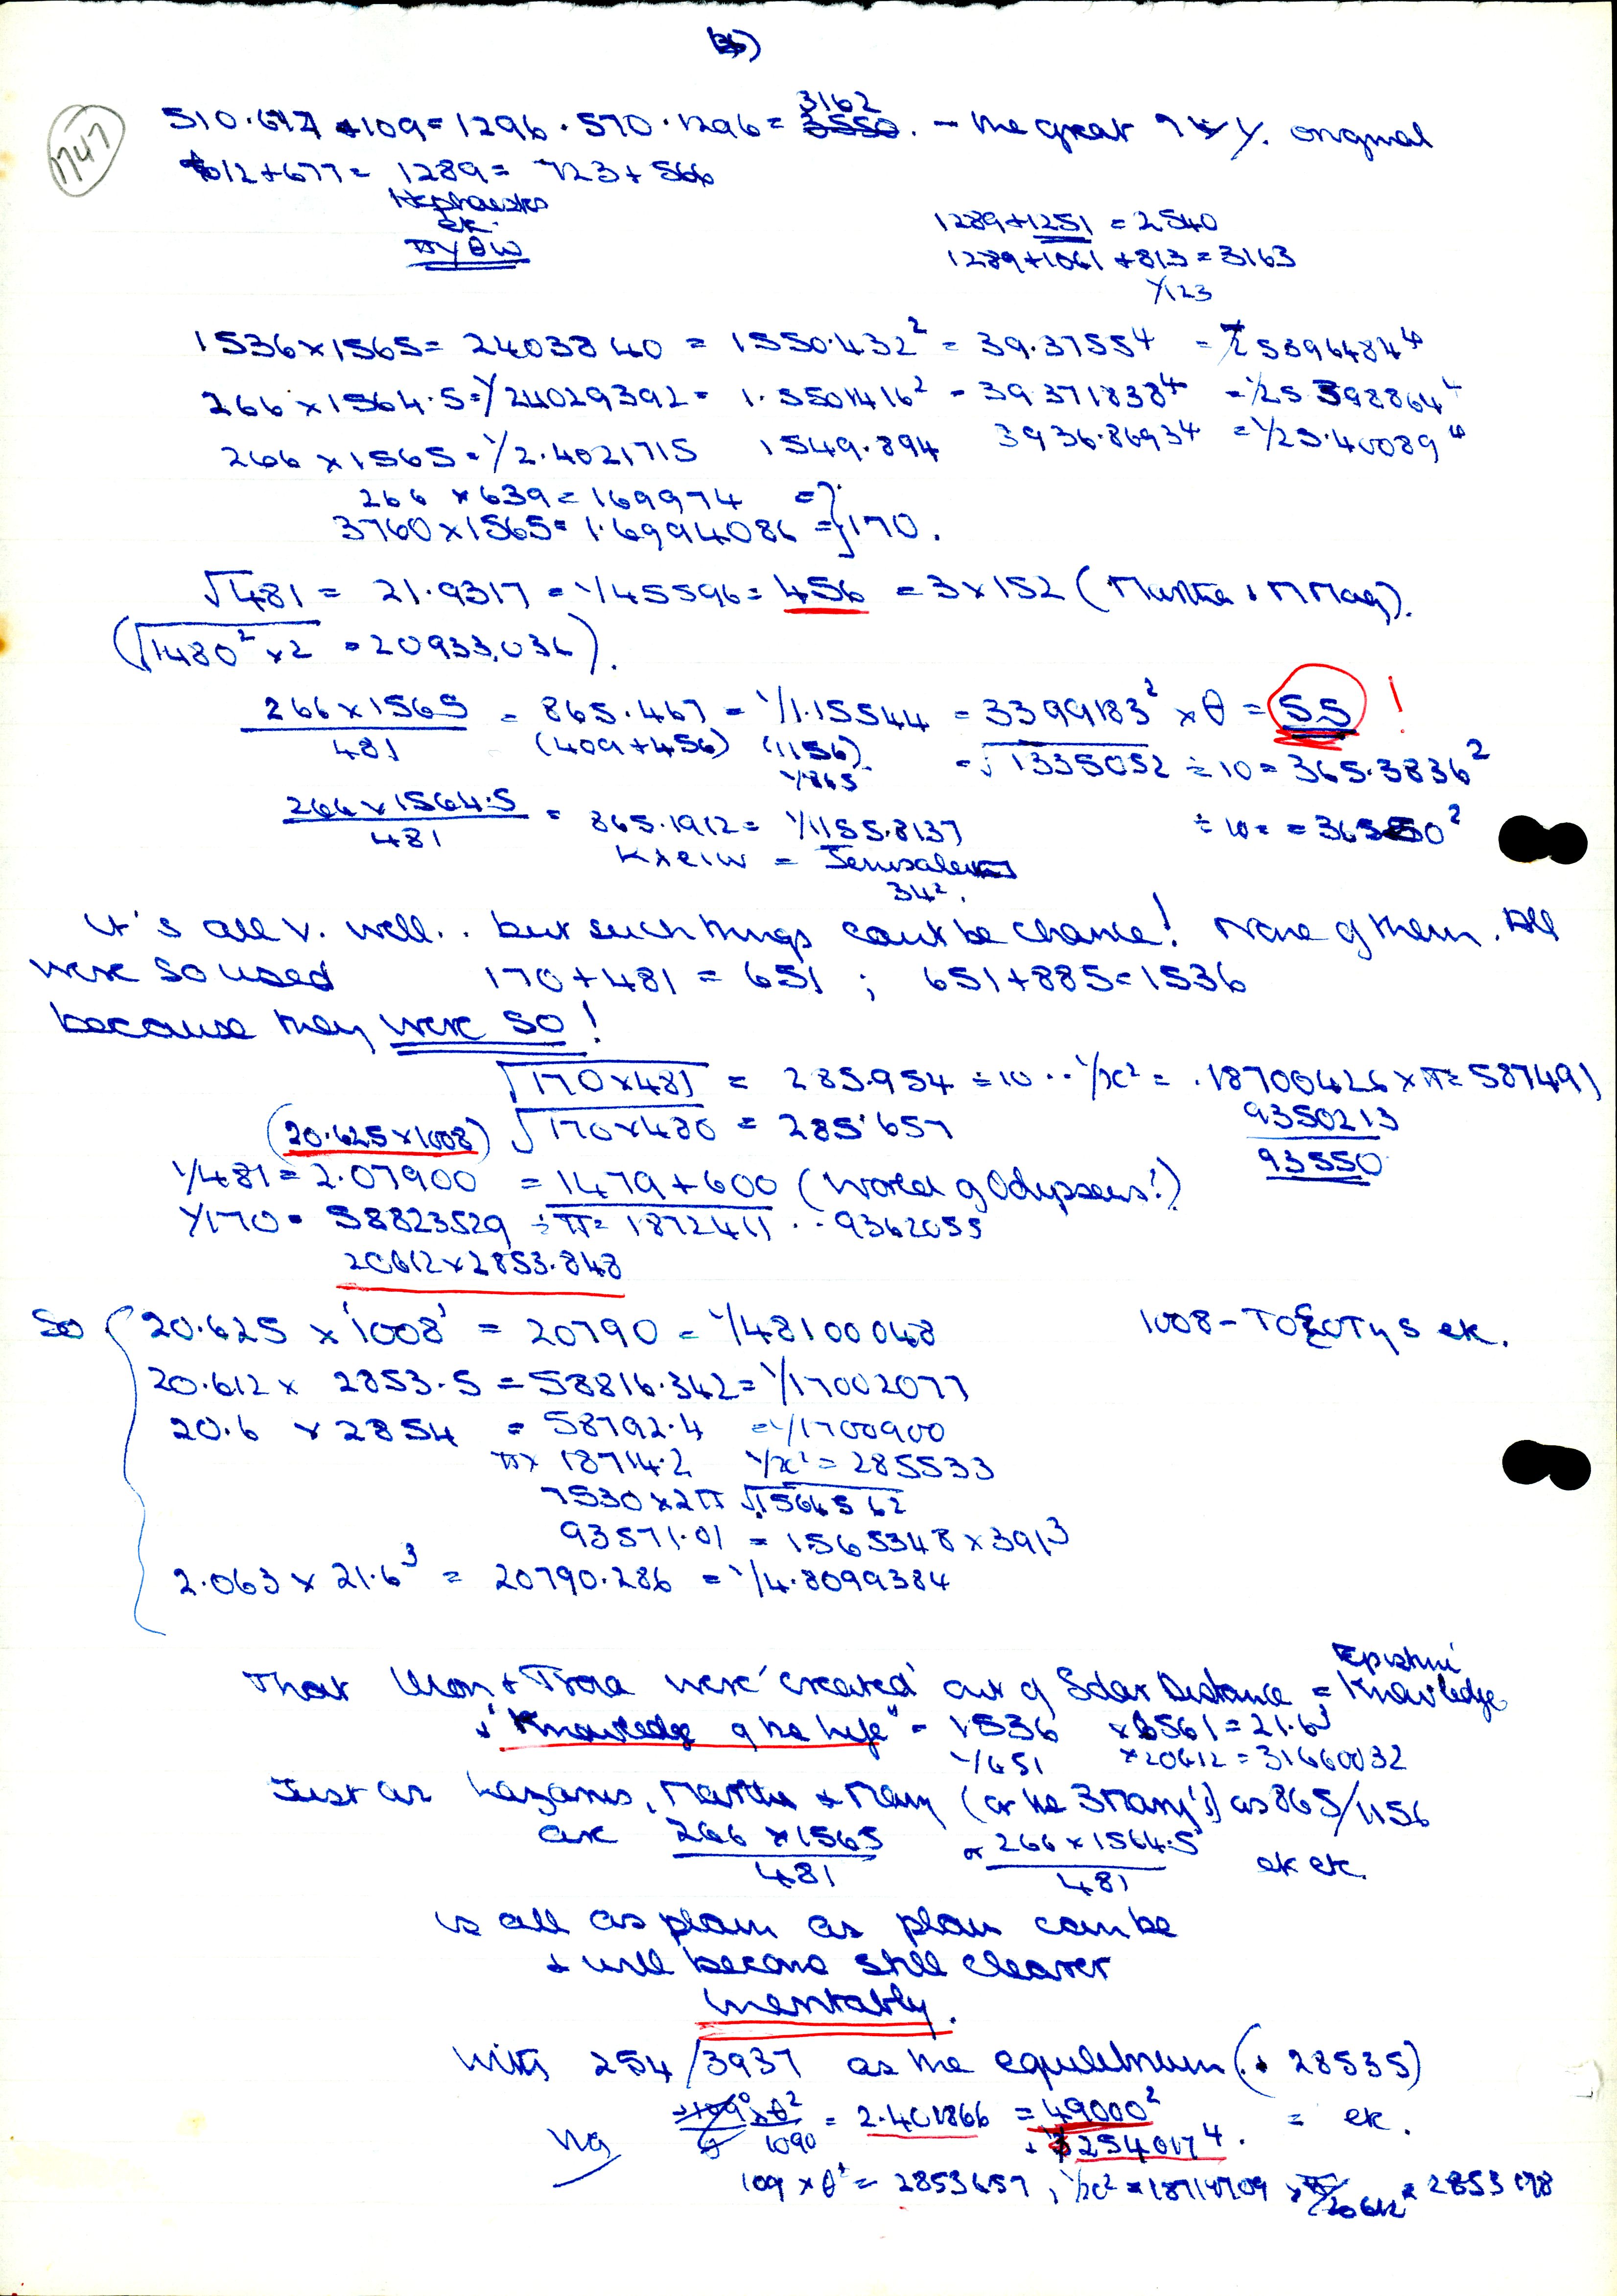 1747
510 · 677 + 109 = 1296 · 570 · 1296 = 3162 3550. - the great original
612 + 677 = 1289 = 723 + 566
Hephaestos
ek.
πγθω
1289 + 1251 = 2540
1289 + 1061 + 813 = 3163
1/123
1536 x 1565 = 2403840 = 1550.432² = 39.3755⁴ = 25396484⁴
266 x 1564.5 = 1/24029392 = 1.5501416² = 39.371838⁴ = 1/25398864⁴
266 x 1565 = 1/2.4021715 1549.894 3936.8693⁴ = 1/25.40089⁴
266 x 639 = 169974 = } 170.
3760 x 1565 = 1.6994086 =
√481 = 21.9317 = 1/45596 = 456 = 3 x 152 (Martha + M Mag).
(√1480² x 2 = 20933,036).
266 x 1565 / 481 = 865.467 = 1/1.15544 = 3399183² x θ = 55 !
(409 + 456) (1156) = √1335052 ÷ 10 = 365.3836²
1/865
266 x 1564.5 / 481 = 865.1912 = 1/1155.8137 ÷ 10 = = 36550²
Kλειω = Jerusalem
34².
It's all v. well.. but such things can't be chance! None of them. All
were so used 170 + 481 = 651 ; 651 + 885 = 1536
because they were so!
√170 x 481 = 285.954 ÷ 10 .. 1/x² = .18700426 x π = 587491
(20.625 x 1008) √170 x 480 = 285.657 9350213
93550
1/481 = 2.07900 = 1479 + 600 (World of Odysseus!)
1/170 = 58823529 ÷ π = 1872411 .. 9362055
20612 x 2853.848
So 20.625 x '1008' = 20790 = 1/48100048 1008 - Τοξοτης ek.
20.612 x 2853.5 = 58816.342 = 1/17002077
20.6 x 2854 = 58792.4 = 1/1700900
π x 18714.2 1/x² = 285533
7530 x 2π √1564562
93571.01 = 1565348 x 391³
2.063 x 21.6³ = 20790.286 = 1/4.8099384
That Ilion + Troia were 'created' out of Solar Distance = Epistimi Knowledge
+ "Knowledge of the life" = 1536 x 6561 = 21.6³
1/651 x 20612 = 31660032
Just as Lazarus, Martha + Mary (or the 3 Mary's) as 865/1156
are 266 x 1565 / 481 or 266 x 1564.5 / 481 ek ek.
is all as plain as plain can be
+ will become still clearer
inevitably.
With 254/3937 as the equilibrium (+ 28535)
1090 = 2.401866 = 49000² = ek.
+ 2540174⁴.
109 x θ² = 2853657, 1/x² = 18714709 x π/20612 = 2853178